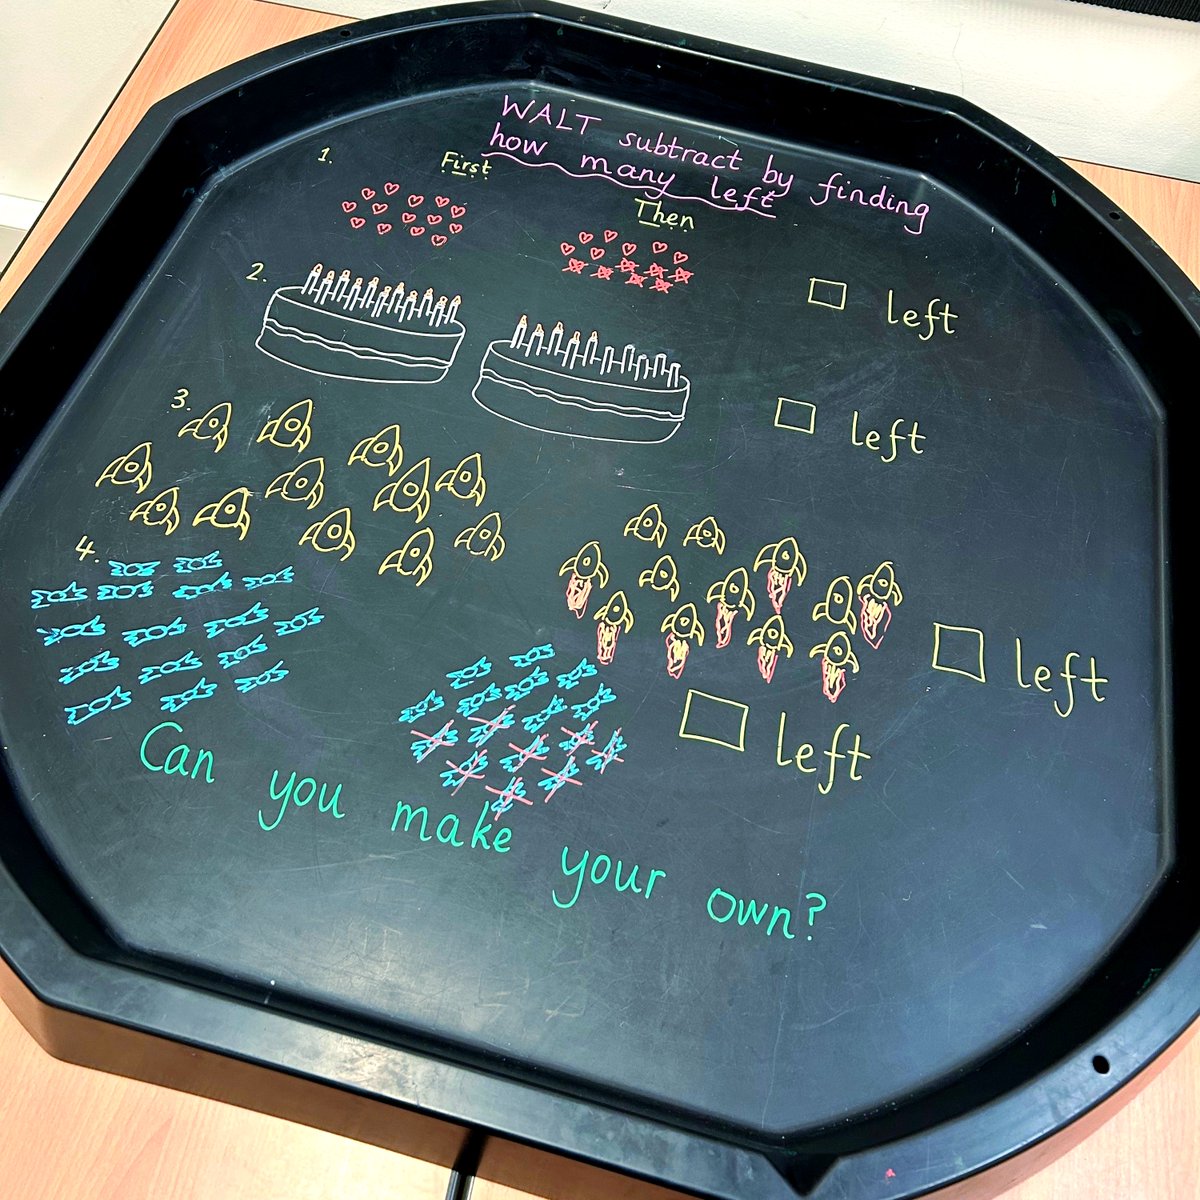 WALT subtract by finding
how many left
1.
First
Then
left
2.
left
3.
left
4.
left
Can you make your own?